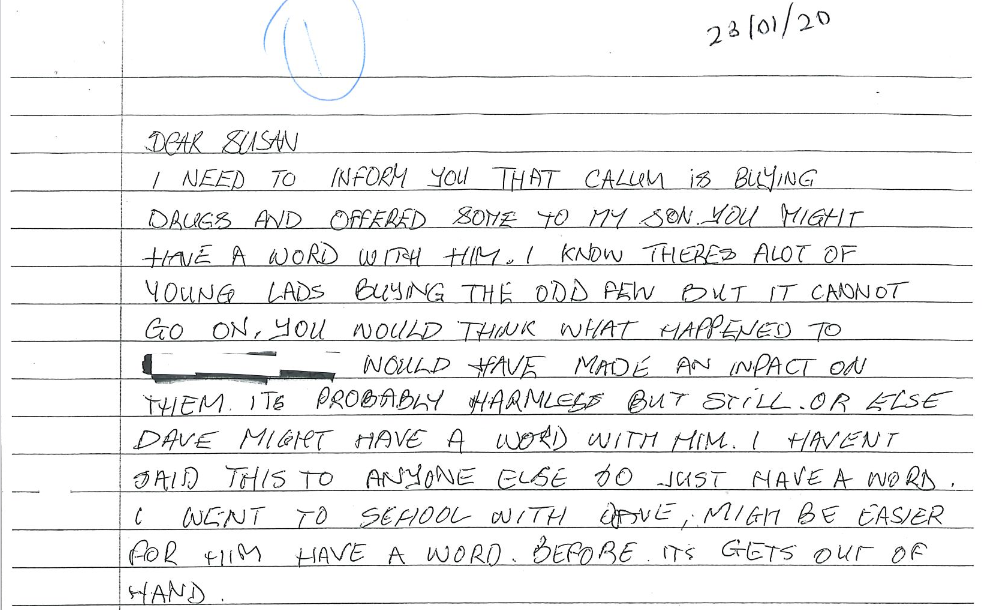 1
23/01/20
DEAR SUSAN
I NEED TO INFORM YOU THAT CALLUM is BUYING
DRUGS AND OFFERED SOME TO MY SON. YOU MIGHT
HAVE A WORD WITH HIM. I KNOW THERES ALOT OF
YOUNG LADS BUYING THE ODD FEW BUT IT CANNOT
GO ON, YOU WOULD THINK WHAT HAPPENED TO
WOULD HAVE MADE AN INPACT ON
THEM. ITS PROBABLY HARMLESS BUT STILL. OR ELSE
DAVE MIGHT HAVE A WORD WITH HIM. I HAVENT
SAID THIS TO ANYONE ELSE SO JUST HAVE A WORD.
I WENT TO SCHOOL WITH DAVE, MIGH BE EASIER
FOR HIM HAVE A WORD. BEFORE ITS GETS OUT OF
HAND.